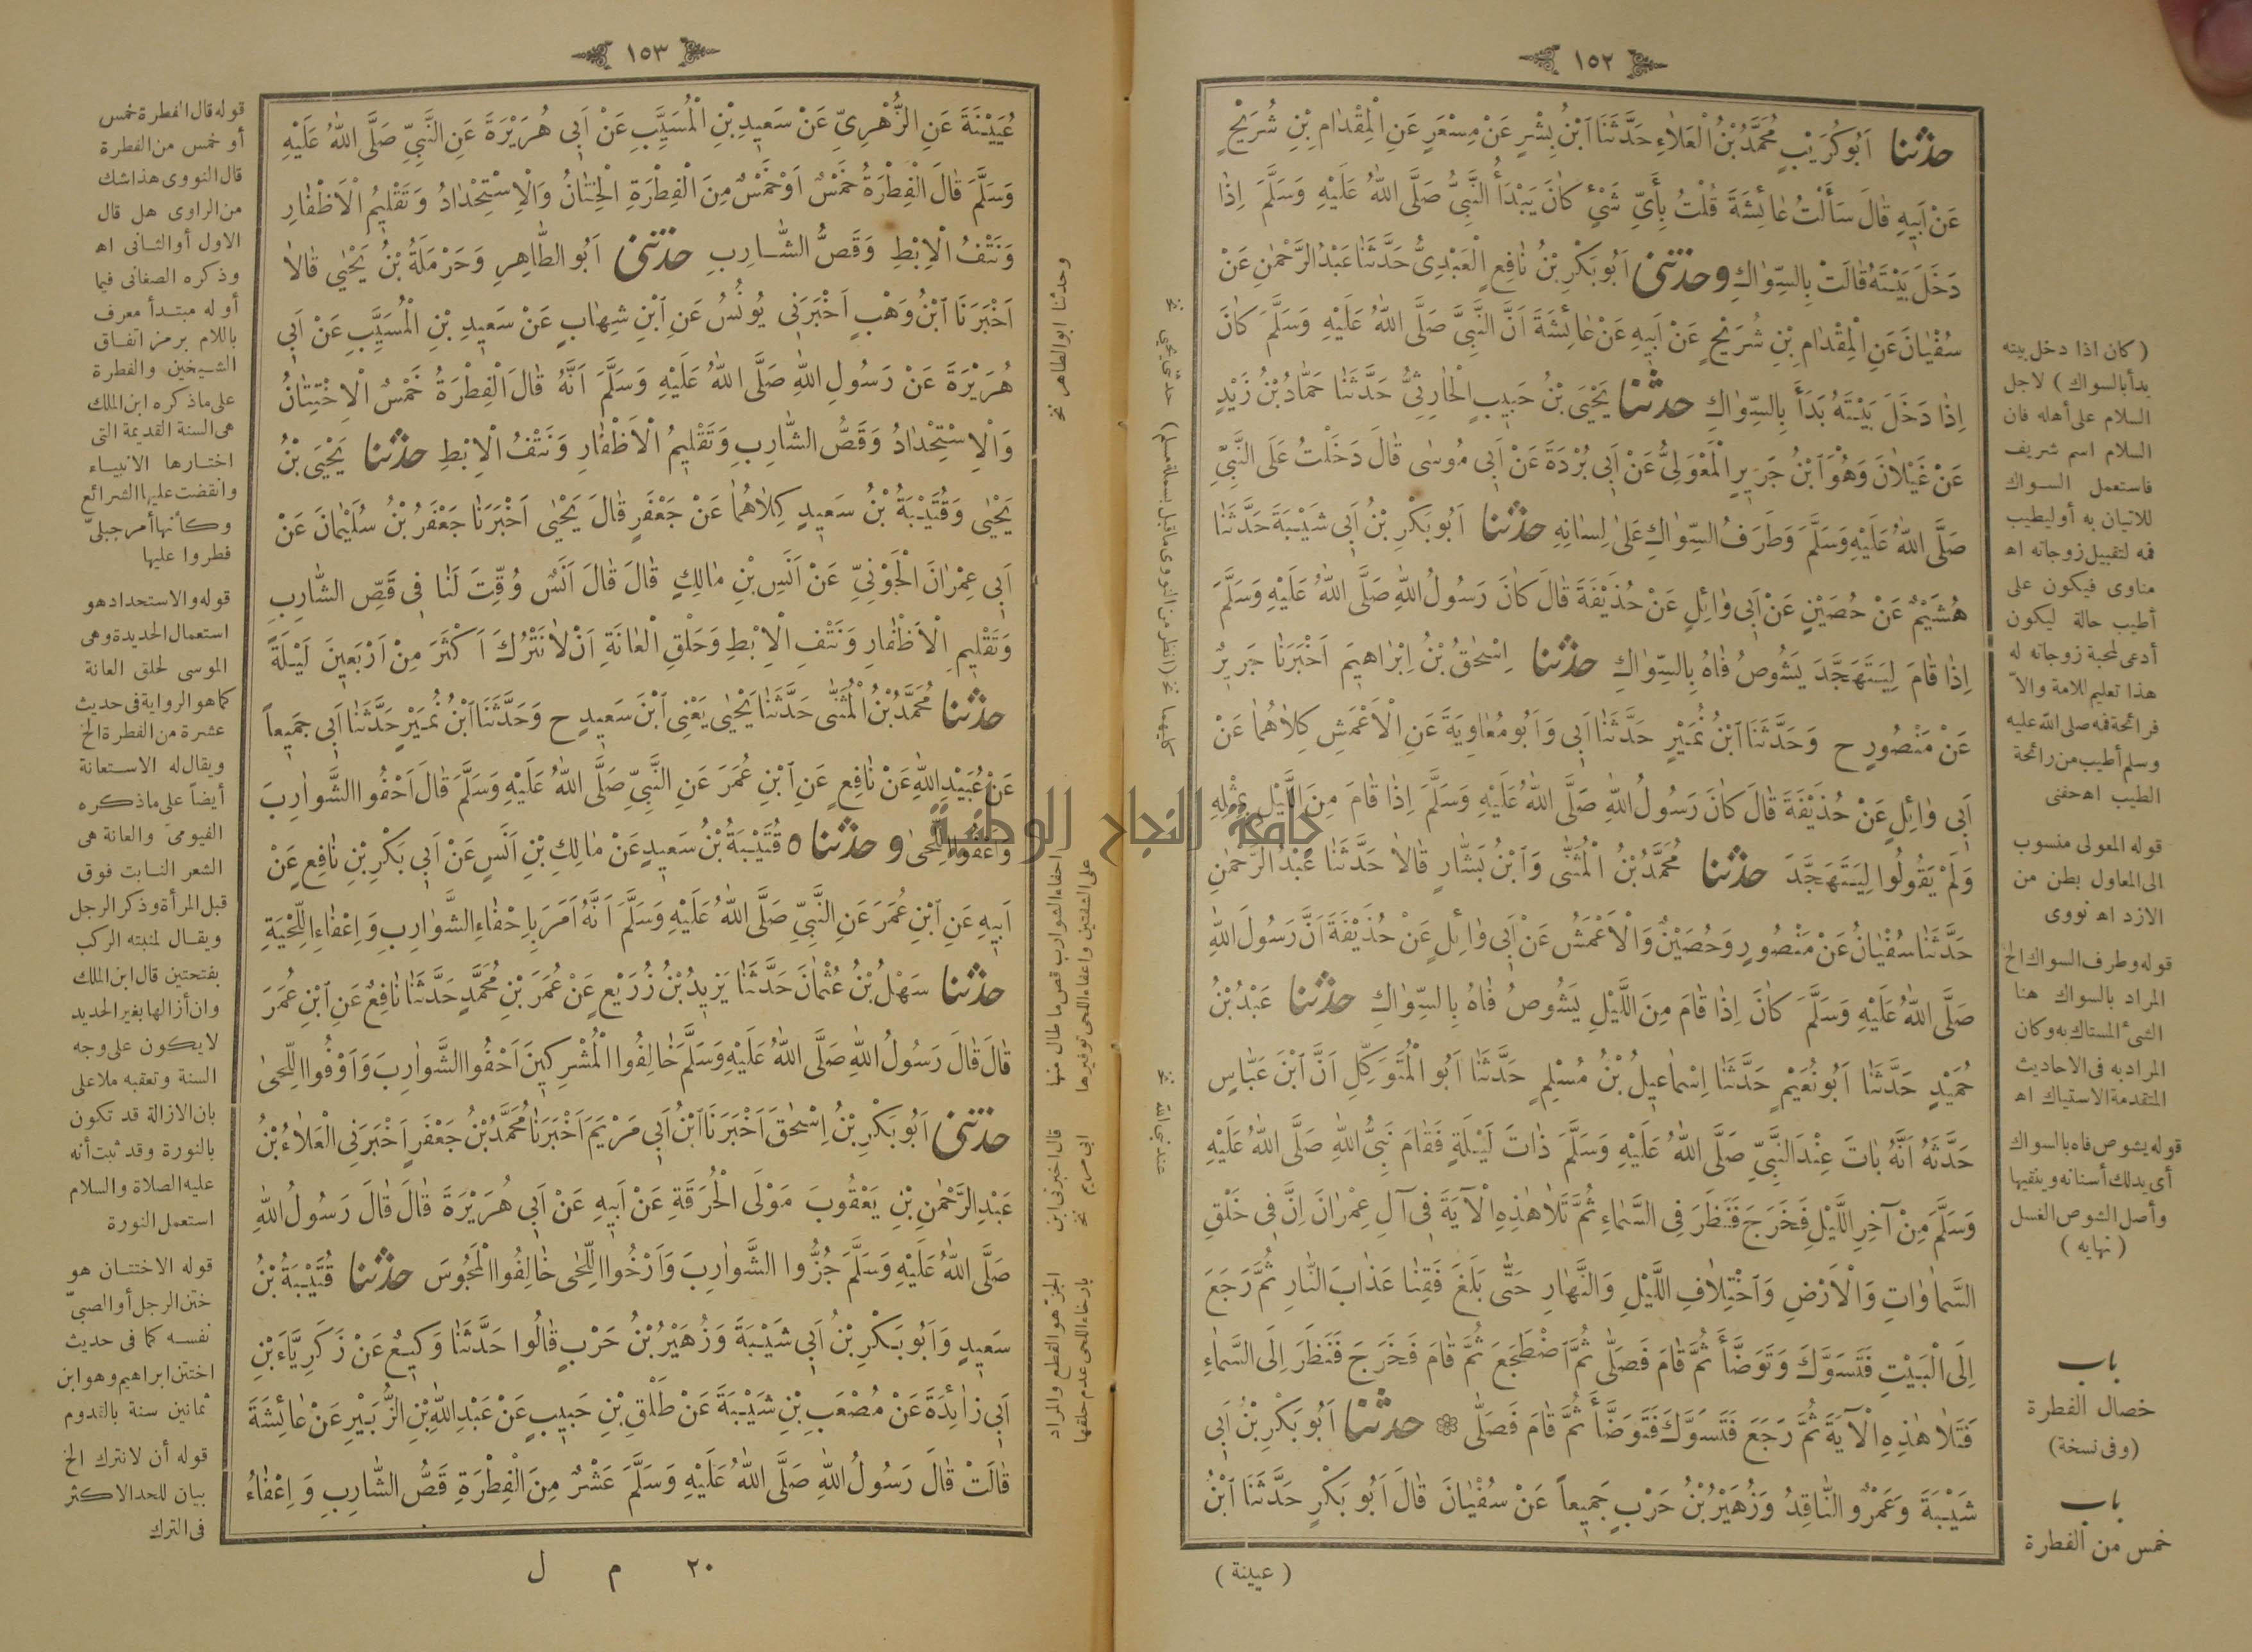 ١٥٢
حدثنا اَبُو كُرَيْبٍ مُحَمَّدُ بْنُ الْعَلاٰءِ حَدَّثَنَا ٱبْنُ بِشْرٍ عَنْ مِسْعَرٍ عَنِ الْمِقْدٰامِ بْنِ شُرَيْحٍ
عَنْ اَبيهِ قٰالَ سَأَلْتُ عٰائِشَةَ قُلْتُ بِأَىِّ شَىْءٍ كٰانَ يَبْدَأُ النَّبِىُّ صَلَّى اللّٰهُ عَلَيْهِ وَسَلَّمَ اِذٰا
دَخَلَ بَيْتَهُ قٰالَتْ بِالسِّوٰاكِ وحدثنى اَبُو بَكْرِ بْنُ نٰافِعٍ الْعَبْدِىُّ حَدَّثَنٰا عَبْدُ الرَّحْمٰنِ عَنْ
سُفْيٰانَ عَنِ الْمِقْدٰامِ بْنِ شُرَيْحٍ عَنْ اَبيهِ عَنْ عٰائِشَةَ اَنَّ النَّبِىَّ صَلَّى اللّٰهُ عَلَيْهِ وَسَلَّمَ كٰانَ
اِذٰا دَخَلَ بَيْتَهُ بَدَأَ بِالسِّوٰاكِ حدثنا يَحْيَى بْنُ حَبيبٍ الْحٰارِثِىُّ حَدَّثَنٰا حَمّٰادُ بْنُ زَيْدٍ
عَنْ غَيْلاٰنَ وَهُوَ ٱبْنُ جَريرٍ الْمَعْوَلِىُّ عَنْ اَبى بُرْدَةَ عَنْ اَبى مُوسٰى قٰالَ دَخَلْتُ عَلَى النَّبِىِّ
صَلَّى اللّٰهُ عَلَيْهِ وَسَلَّمَ وَطَرَفُ السِّوٰاكِ عَلىٰ لِسٰانِهِ حدثنا اَبُو بَكْرِ بْنُ اَبى شَيْبَةَ حَدَّثَنٰا
هُشَيْمٌ عَنْ حُصَيْنٍ عَنْ اَبى وٰائِلٍ عَنْ حُذَيْفَةَ قٰالَ كٰانَ رَسُولُ اللّٰهِ صَلَّى اللّٰهُ عَلَيْهِ وَسَلَّمَ
اِذٰا قٰامَ لِيَتَهَجَّدَ يَشُوصُ فٰاهُ بِالسِّوٰاكِ حدثنا اِسْحٰقُ بْنُ اِبْرٰاهيمَ اَخْبَرَنٰا جَريرٌ
عَنْ مَنْصُورٍ ح وَحَدَّثَنَا ٱبْنُ نُمَيْرٍ حَدَّثَنٰا اَبى وَاَبُو مُعٰاوِيَةَ عَنِ الْاَعْمَشِ كِلاٰهُمٰا عَنْ
اَبى وٰائِلٍ عَنْ حُذَيْفَةَ قٰالَ كٰانَ رَسُولُ اللّٰهِ صَلَّى اللّٰهُ عَلَيْهِ وَسَلَّمَ اِذٰا قٰامَ مِنَ اللَّيْلِ بِمِثْلِهِ
وَلَمْ يَقُولُوا لِيَتَهَجَّدَ حدثنا مُحَمَّدُ بْنُ الْمُثَنّٰى وَٱبْنُ بَشّٰارٍ قٰالاٰ حَدَّثَنٰا عَبْدُ الرَّحْمٰنِ
حَدَّثَنٰا سُفْيٰانُ عَنْ مَنْصُورٍ وَحُصَيْنٌ وَالْاَعْمَشُ عَنْ اَبى وٰائِلٍ عَنْ حُذَيْفَةَ اَنَّ رَسُولَ اللّٰهِ
صَلَّى اللّٰهُ عَلَيْهِ وَسَلَّمَ كٰانَ اِذٰا قٰامَ مِنَ اللَّيْلِ يَشُوصُ فٰاهُ بِالسِّوٰاكِ حدثنا عَبْدُ بْنُ
حُمَيْدٍ حَدَّثَنٰا اَبُو نُعَيْمٍ حَدَّثَنٰا اِسْمٰاعيلُ بْنُ مُسْلِمٍ حَدَّثَنٰا اَبُو الْمُتَوَكِّلِ اَنَّ ٱبْنَ عَبّٰاسٍ
حَدَّثَهُ اَنَّهُ بٰاتَ عِنْدَ النَّبِىِّ صَلَّى اللّٰهُ عَلَيْهِ وَسَلَّمَ ذٰاتَ لَيْلَةٍ فَقٰامَ نَبِىُّ اللّٰهِ صَلَّى اللّٰهُ عَلَيْهِ
وَسَلَّمَ مِنْ آخِرِ اللَّيْلِ فَخَرَجَ فَنَظَرَ فِى السَّمٰاءِ ثُمَّ تَلاٰ هٰذِهِ الْآيَةَ فى آلِ عِمْرٰانَ اِنَّ فى خَلْقِ
السَّمٰاوٰاتِ وَالْاَرْضِ وَٱخْتِلاٰفِ اللَّيْلِ وَالنَّهٰارِ حَتّٰى بَلَغَ فَقِنٰا عَذٰابَ النّٰارِ ثُمَّ رَجَعَ
اِلَى الْبَيْتِ فَتَسَوَّكَ وَتَوَضَّأَ ثُمَّ قٰامَ فَصَلّٰى ثُمَّ ٱضْطَجَعَ ثُمَّ قٰامَ فَخَرَجَ فَنَظَرَ اِلَى السَّمٰاءِ
فَتَلاٰ هٰذِهِ الْآيَةَ ثُمَّ رَجَعَ فَتَسَوَّكَ فَتَوَضَّأَ ثُمَّ قٰامَ فَصَلّٰى ❁ حدثنا اَبُو بَكْرِ بْنُ اَبى
شَيْبَةَ وَعَمْرٌو النّٰاقِدُ وَزُهَيْرُ بْنُ حَرْبٍ جَميعاً عَنْ سُفْيٰانَ قٰالَ اَبُو بَكْرٍ حَدَّثَنَا ٱبْنُ
( عيينة )
( كان اذا دخل بيته
بدأ بالسواك ) لاجل
السلام على أهله فان
السلام اسم شريف
فاستعمل السواك
للاتيان به أو ليطيب
فمه لتقبيل زوجاته اه
مناوى فيكون على
أطيب حالة ليكون
أدعى لمحبة زوجاته له
هذا تعليم للامة والاّ
فرائحة فمه صلى الله عليه
وسلم أطيب من رائحة
الطيب اه حفنى
قوله المعولى منسوب
الى المعاول بطن من
الازد اه نووى
قوله وطرف السواك الخ
المراد بالسواك هنا
الشئ المستاك به وكان
المراد به فى الاحاديث
المتقدمة الاستياك اه
قوله يشوص فاه بالسواك
أى يدلك أسنانه وينقيها
وأصل الشوص الغسل
( نهايه )
باب
خصال الفطرة
(وفى نسخة)
باب
خمس من الفطرة
حدثنى يحيى نخ
كليهما نخ
عند نبى الله نخ
١٥٣
عُيَيْنَةَ عَنِ الزُّهْرِىِّ عَنْ سَعيدِ بْنِ الْمُسَيَّبِ عَنْ اَبى هُرَيْرَةَ عَنِ النَّبِىِّ صَلَّى اللّٰهُ عَلَيْهِ
وَسَلَّمَ قٰالَ الْفِطْرَةُ خَمْسٌ اَوْ خَمْسٌ مِنَ الْفِطْرَةِ الْخِتٰانُ وَالْاِسْتِحْدٰادُ وَتَقْليمُ الْاَظْفٰارِ
وَنَتْفُ الْاِبْطِ وَقَصُّ الشّٰارِبِ حدثنى اَبُو الطّٰاهِرِ وَحَرْمَلَةُ بْنُ يَحْيٰى قٰالاٰ
اَخْبَرَنَا ٱبْنُ وَهْبٍ اَخْبَرَنى يُونُسُ عَنِ ٱبْنِ شِهٰابٍ عَنْ سَعيدِ بْنِ الْمُسَيَّبِ عَنْ اَبى
هُرَيْرَةَ عَنْ رَسُولِ اللّٰهِ صَلَّى اللّٰهُ عَلَيْهِ وَسَلَّمَ اَنَّهُ قٰالَ الْفِطْرَةُ خَمْسٌ الْاِخْتِتٰانُ
وَالْاِسْتِحْدٰادُ وَقَصُّ الشّٰارِبِ وَتَقْليمُ الْاَظْفٰارِ وَنَتْفُ الْاِبْطِ حدثنا يَحْيَى بْنُ
يَحْيٰى وَقُتَيْبَةُ بْنُ سَعيدٍ كِلاٰهُمٰا عَنْ جَعْفَرٍ قٰالَ يَحْيٰى اَخْبَرَنٰا جَعْفَرُ بْنُ سُلَيْمٰانَ عَنْ
اَبى عِمْرٰانَ الْجَوْنِىِّ عَنْ اَنَسِ بْنِ مٰالِكٍ قٰالَ قٰالَ اَنَسٌ وُقِّتَ لَنٰا فى قَصِّ الشّٰارِبِ
وَتَقْليمِ الْاَظْفٰارِ وَنَتْفِ الْاِبْطِ وَحَلْقِ الْعٰانَةِ اَنْ لاٰ نَتْرُكَ اَكْثَرَ مِنْ اَرْبَعينَ لَيْلَةً
حدثنا مُحَمَّدُ بْنُ الْمُثَنّٰى حَدَّثَنٰا يَحْيٰى يَعْنِى ٱبْنَ سَعيدٍ ح وَحَدَّثَنَا ٱبْنُ نُمَيْرٍ حَدَّثَنٰا اَبى جَميعاً
عَنْ عُبَيْدِ اللّٰهِ عَنْ نٰافِعٍ عَنِ ٱبْنِ عُمَرَ عَنِ النَّبِىِّ صَلَّى اللّٰهُ عَلَيْهِ وَسَلَّمَ قٰالَ اَحْفُوا الشَّوٰارِبَ
وَاَعْفُوا اللِّحىٰ وحدثنا ه قُتَيْبَةُ بْنُ سَعيدٍ عَنْ مٰالِكِ بْنِ اَنَسٍ عَنْ اَبى بَكْرِ بْنِ نٰافِعٍ عَنْ
اَبيهِ عَنِ ٱبْنِ عُمَرَ عَنِ النَّبِىِّ صَلَّى اللّٰهُ عَلَيْهِ وَسَلَّمَ اَنَّهُ اَمَرَ بِاِحْفٰاءِ الشَّوٰارِبِ وَاِعْفٰاءِ اللِّحْيَةِ
حدثنا سَهْلُ بْنُ عُثْمٰانَ حَدَّثَنٰا يَزيدُ بْنُ زُرَيْعٍ عَنْ عُمَرَ بْنِ مُحَمَّدٍ حَدَّثَنٰا نٰافِعٌ عَنِ ٱبْنِ عُمَرَ
قٰالَ قٰالَ رَسُولُ اللّٰهِ صَلَّى اللّٰهُ عَلَيْهِ وَسَلَّمَ خٰالِفُوا الْمُشْرِكينَ اَحْفُوا الشَّوٰارِبَ وَاَوْفُوا اللِّحىٰ
حدثنى اَبُو بَكْرِ بْنُ اِسْحٰقَ اَخْبَرَنَا ٱبْنُ اَبى مَرْيَمَ اَخْبَرَنٰا مُحَمَّدُ بْنُ جَعْفَرٍ اَخْبَرَنِى الْعَلاٰءُ بْنُ
عَبْدِ الرَّحْمٰنِ بْنِ يَعْقُوبَ مَوْلَى الْحُرَقَةِ عَنْ اَبيهِ عَنْ اَبى هُرَيْرَةَ قٰالَ قٰالَ رَسُولُ اللّٰهِ
صَلَّى اللّٰهُ عَلَيْهِ وَسَلَّمَ جُزُّوا الشَّوٰارِبَ وَاَرْخُوا اللِّحٰى خٰالِفُوا الْمَجُوسَ حدثنا قُتَيْبَةُ بْنُ
سَعيدٍ وَاَبُو بَكْرِ بْنُ اَبى شَيْبَةَ وَزُهَيْرُ بْنُ حَرْبٍ قٰالُوا حَدَّثَنٰا وَكيعٌ عَنْ زَكَرِيَّاءَ بْنِ
اَبى زٰائِدَةَ عَنْ مُصْعَبِ بْنِ شَيْبَةَ عَنْ طَلْقِ بْنِ حَبيبٍ عَنْ عَبْدِ اللّٰهِ بْنِ الزُّبَيْرِ عَنْ عٰائِشَةَ
قٰالَتْ قٰالَ رَسُولُ اللّٰهِ صَلَّى اللّٰهُ عَلَيْهِ وَسَلَّمَ عَشْرٌ مِنَ الْفِطْرَةِ قَصُّ الشّٰارِبِ وَاِعْفٰاءُ
٢٠ م ل
قوله قال الفطرة خمس
أو خمس من الفطرة
قال النووى هذا شك
من الراوى هل قال
الاول أو الثانى اه
وذكره الصغانى فيما
أوله مبتدأ معرف
باللام برمز اتفاق
الشيخين والفطرة
على ما ذكره ابن الملك
هى السنة القديمة التى
اختارها الانبياء
وانقضت عليها الشرائع
وكأنها أمر جبلىّ
فطروا عليها
قوله والاستحداد هو
استعمال الحديدة وهى
الموسى لحلق العانة
كما هو الرواية فى حديث
عشرة من الفطرة الخ
ويقال له الاستعانة
أيضاً على ما ذكره
الفيومىّ والعانة هى
الشعر النابت فوق
قبل المرأة وذكر الرجل
ويقال لمنبته الركب
بفتحتين قال ابن الملك
وان أزالها بغير الحديد
لا يكون على وجه
السنة وتعقبه ملا على
بان الازالة قد تكون
بالنورة وقد ثبت أنه
عليه الصلاة والسلام
استعمل النورة
قوله الاختتان هو
ختن الرجل أو الصبىّ
نفسه كما فى حديث
اختتن ابراهيم وهو ابن
ثمانين سنة بالقدوم
قوله أن لا نترك الخ
بيان للحد الاكثر
فى الترك
وحدثنا ابو الطاهر نخ
احفاء الشوارب قص ما طال منها
على الشفتين واعفاء اللحى توفيرها
قال اخبرنى ابن
ابى مريم نخ
الجزّ هو القطع والمراد
بارخاء اللحى عدم حلقها
جامعة النجاح الوطنية